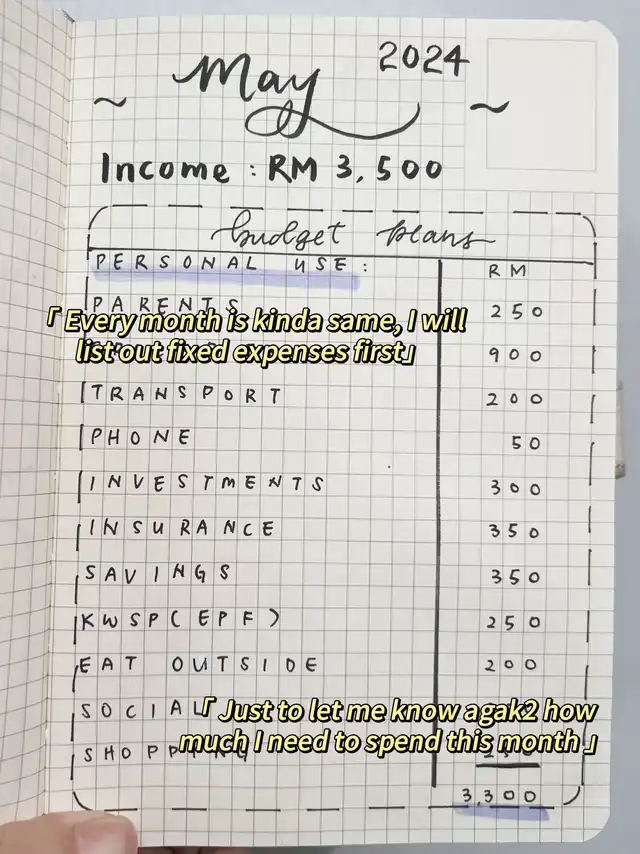 2024
~ May ~
Income : RM 3,500
budget plans
PERSONAL USE : RM
PARENTS 250
「 Every month is kinda same, I will
list out fixed expenses first」
900
TRANSPORT 200
PHONE 50
INVESTMENTS 300
INSURANCE 350
SAVINGS 350
KWSP ( EPF ) 250
EAT OUTSIDE 200
SOCIAL
「 Just to let me know agak2 how
much I need to spend this month 」
SHOPPING
3,300